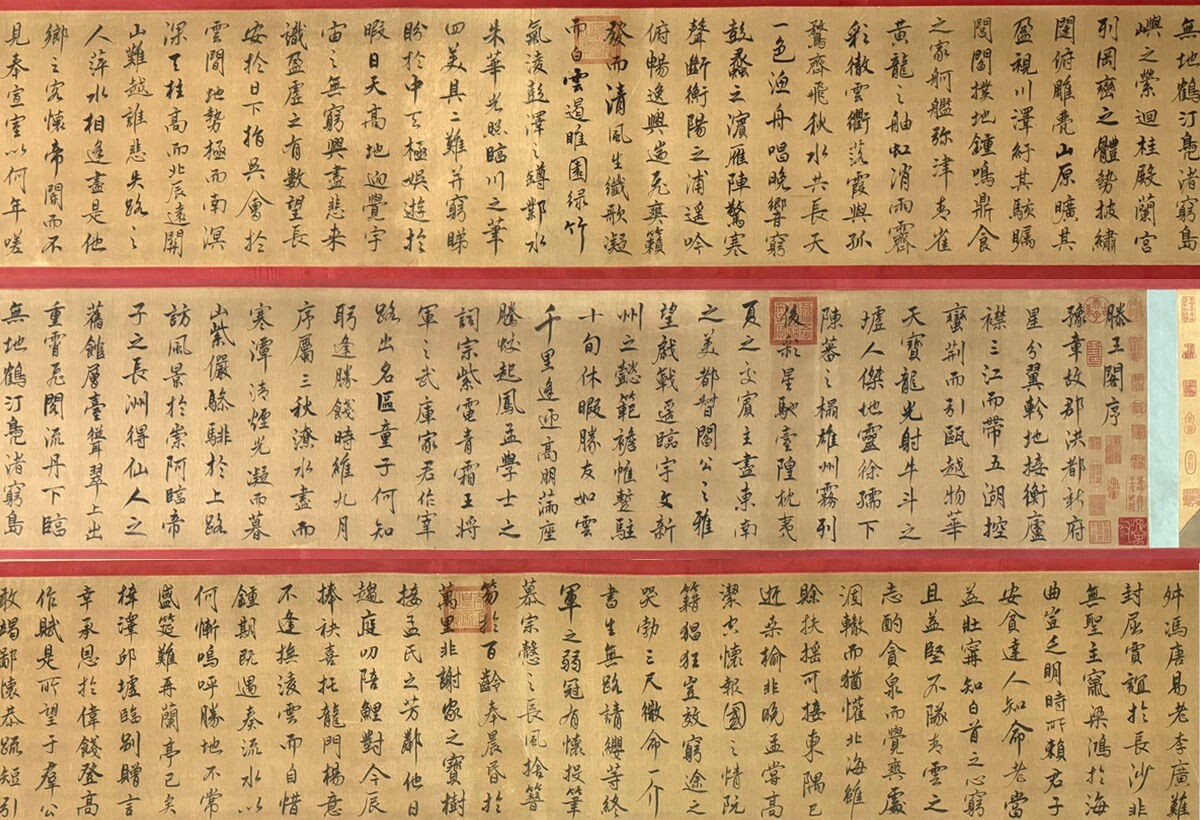 滕王閣序
豫章故郡洪都新府
星分翼軫地接衡廬
襟三江而帶五湖控
蠻荊而引甌越物華
天寶龍光射牛斗之
墟人傑地靈徐孺下
陳蕃之榻雄州霧列
俊彩星馳臺隍枕夷
夏之交賓主盡東南
之美都督閻公之雅
望棨戟遙臨宇文新
州之懿範襜帷暫駐
十旬休暇勝友如雲
千里逢迎高朋滿座
騰蛟起鳳孟學士之
詞宗紫電青霜王將
軍之武庫家君作宰
路出名區童子何知
躬逢勝餞時維九月
序屬三秋潦水盡而
寒潭清煙光凝而暮
山紫儼驂騑於上路
訪風景於崇阿臨帝
子之長洲得仙人之
舊館層臺聳翠上出
重霄飛閣流丹下臨
無地鶴汀鳧渚窮島
無地鶴汀鳧渚窮島
嶼之縈迴桂殿蘭宮
列岡巒之體勢披繡
闥俯雕甍山原曠其
盈視川澤紆其駭矚
閭閻撲地鍾鳴鼎食
之家舸艦弥津青雀
黃龍之舳虹消雨霽
彩徹雲衢落霞與孤
鶩齊飛秋水共長天
一色漁舟唱晚響窮
彭蠡之濱雁陣驚寒
聲斷衡陽之浦遥吟
俯暢逸興遄飛爽籟
發而清風生纖歌凝
而白雲遏睢園綠竹
氣凌彭澤之罇鄴水
朱華光照臨川之筆
四美具二難并窮睇
眄於中天極娛遊於
暇日天高地迥覺宇
宙之無窮興盡悲来
識盈虛之有數望長
安於日下指吳會於
雲間地勢極而南溟
深天柱高而北辰遠關
山難越誰悲失路之
人萍水相逢盡是他
鄉之客懷帝閽而不
見奉宣室以何年嗟
舛馮唐易老李廣難
封屈賈誼於長沙非
無聖主竄梁鴻於海
曲豈乏明時所賴君子
安貧達人知命老當
益壯甯知白首之心窮
且益堅不墜青雲之
志酌貪泉而覺爽處
涸轍而猶懽北海雖
賒扶搖可接東隅已
逝桑榆非晚孟嘗高
潔空懷報國之情阮
籍猖狂豈效窮途之
哭勃三尺微命一介
書生無路請纓等終
軍之弱冠有懷投筆
慕宗慤之長風捨簪
笏於百齡奉晨昏於
萬里非謝家之寶樹
接孟氏之芳鄰他日
趨庭叨陪鯉對今辰
捧袂喜托龍門楊意
不逢撫凌雲而自惜
鍾期既遇奏流水以
何慚嗚呼勝地不常
盛筵難再蘭亭已矣
梓澤邱墟臨別贈言
幸承恩於偉餞登高
作賦是所望于羣公
敢竭鄙懷恭疏短引